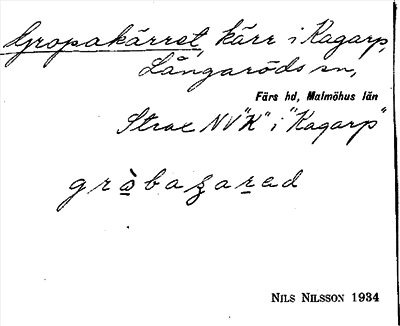 Gropakärret, kärr i Kagarp,
Långaröds sn,
Färs hd, Malmöhus län
Strax NV "K" i "Kagarp"
gròbaʒarad
NILS NILSSON 1934